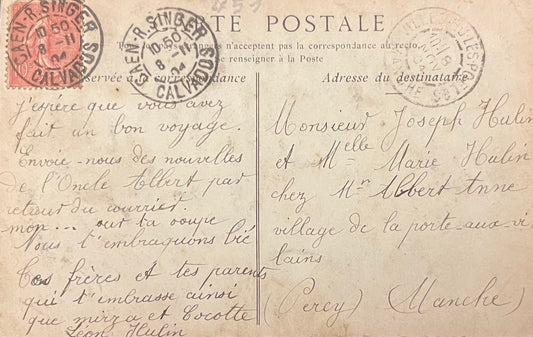 CARTE POSTALE
Tous les pays étrangers n'acceptent pas la correspondance au recto.
se renseigner à la Poste
réservée à la correspondance
Adresse du destinataire
CAEN-R. SINGER
10 50
8 -11
04
CALVADOS
CAEN-R. SINGER
10 50
8 -11
04
CALVADOS
J'espère que vous avez
fait un bon voyage.
Envoie-nous des nouvelles
de l'Oncle Albert par
retour du courrier.
mon... our ta
Nous t'embraquons
frères et tes parents
qui t'embrasse ainsi
que mirza et Cocotte
Léon Hulin
Monsieur Joseph Hulin
et Melle Marie Hulin
chez Mr Albert Anne
village de la porte-aux-vi
lains
(Percy) (Manche)